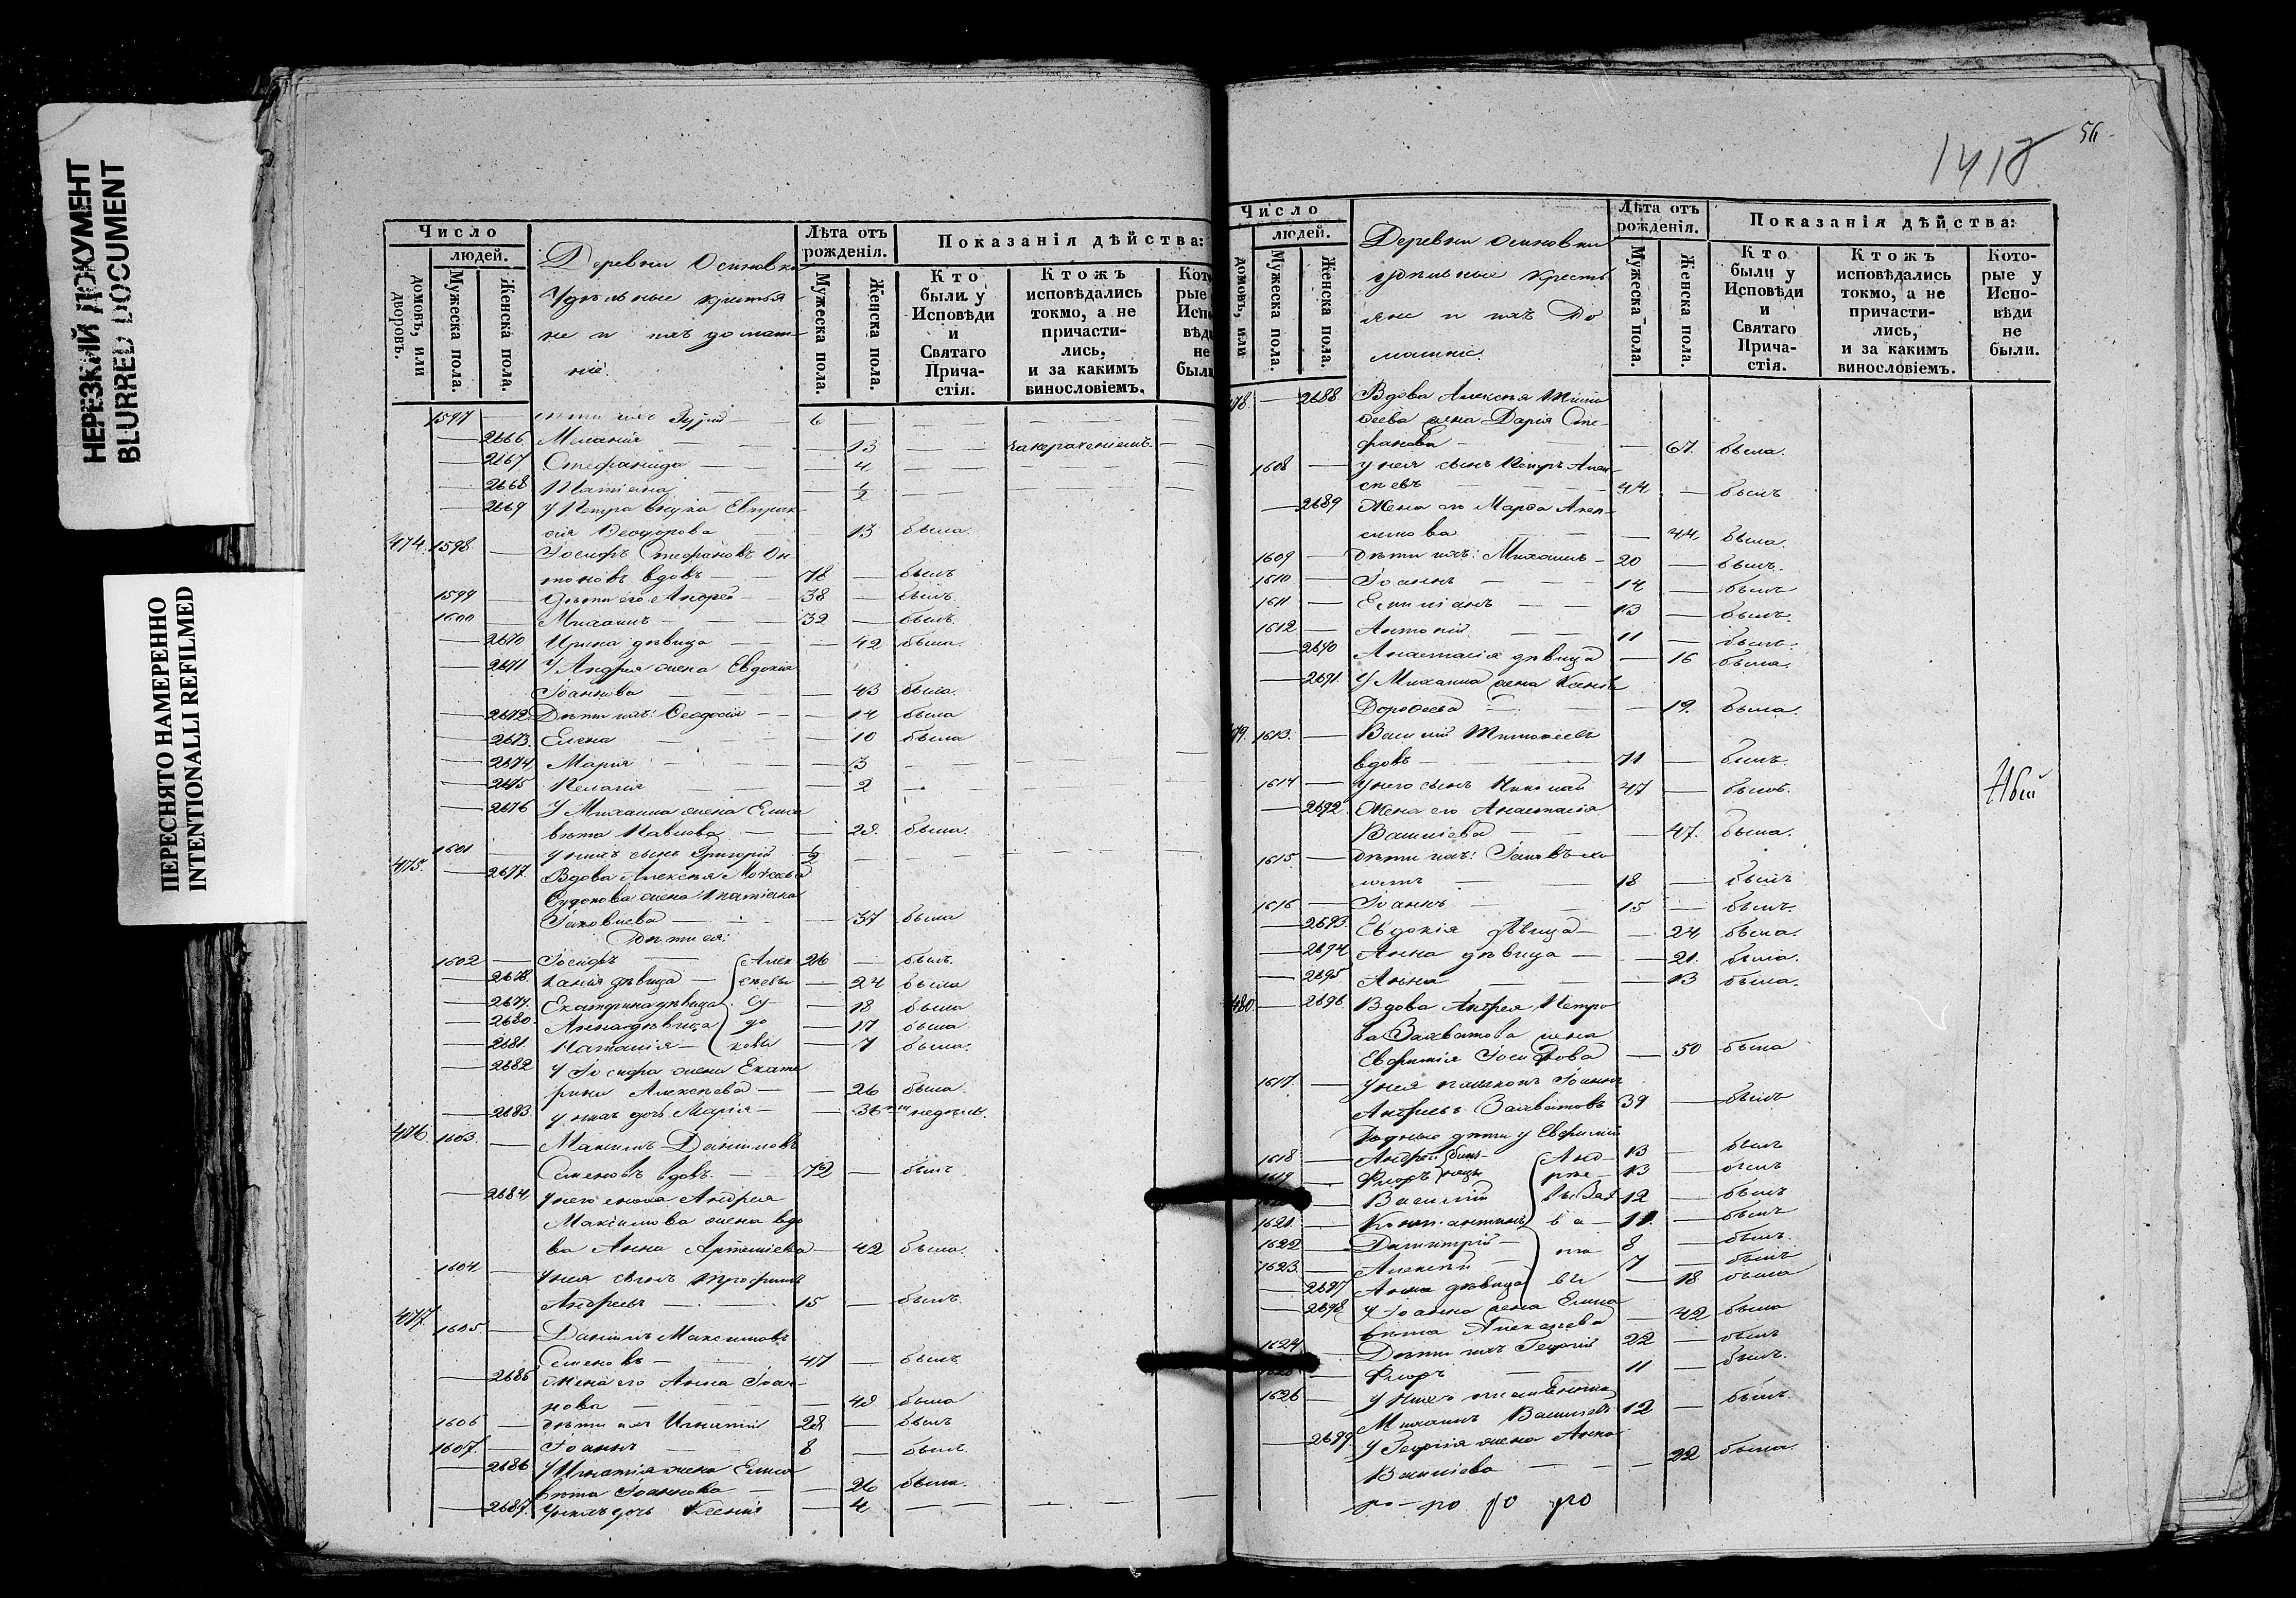 НЕРЕЗКИЙ ДОКУМЕНТ
BLURRED DOCUMENT
ПЕРЕСНЯТО НАМЕРЕННО
INTENTIONALLI REFILMED
Число
людей.
домовъ, или дворовъ.
Мужеска пола.
Женска пола.
Деревни Осиновки
Удѣльные крестья-
не и ихъ домаш-
ніе.
Лѣта отъ рожденія.
Мужеска пола.
Женска пола.
Показанія дѣйства:
Кто были у Исповѣди и Святаго Прича-стія.
Ктожъ исповѣдались токмо, а не причасти-лись, и за какимъ винословіемъ.
1597 — 6 — — —
— 2666 Меланія — 13 —
— 2667 Стефанида — 4 — —
— 2668 Татіана — ½ — —
— 2669 У Петра внука Евпрак-
сія Ѳеодорова — 13 была.
474. 1598 — Іосифъ Стефановъ
вдовъ — 78 — былъ
1599 — Дѣти его Андрей — 38 — былъ.
1600 — Михаилъ — 32 — былъ.
— 2670 Ирина дѣвица — 42 была.
— 2671 У Андрея жена Евдокія
Іоаннова — 43 была.
— 2672 Дѣти ихъ: Ѳеодосія — 14 была
— 2673. Елена — 10 была
— 2674 Марія — 3 —
— 2675 Пелагія — 2 —
— 2676 У Михаила жена Елиса
вѣта Павлова — 28. была.
1601 — У нихъ сынъ Григорій ½ —
475. — 2677. Вдова Алексѣя
жена Татіана
Іаковлева — 37 была
Дѣти ея:
1602 — Іосифъ — Алек 26 — былъ.
— 2678. дѣвица — сѣевы — 24 была
— 2679. Екатерина дѣвица — 18 была
— 2680. Анна дѣвица — 17 была
— 2681. Наталія — 7 была.
— 2682 У Іосифа жена Екате
рина Алексѣева — 26 была.
— 2683. У нихъ дочь Марія — недѣль.
476. 1603. — Максимъ Даниловъ
Семеновъ вдовъ. — 72 — былъ
— 2684. У него сноха Андрея
Максимова жена вдо
ва Анна Артемьева — 42 была.
1604. — У нея сынъ Трофимъ
Андреевъ — 15 — былъ.
477. 1605. — Даниилъ Максимовъ
Семеновъ — 47 — былъ
— 2685 Жена его Анна Іоан-
нова — 48 была
1606 — Дѣти ихъ Игнатій 28 — былъ
1607. — Іоаннъ 8 — былъ.
— 2686 У Игнатія жена Елиса
вѣта Іоаннова — 26 была.
— 2687. У нихъ дочь Ксенія — 4 —
1418
56.
Число
людей.
домовъ, или
Мужеска пола.
Женска пола.
Деревни Осиновки
удѣльные кресть
яне и ихъ до
машніе.
Лѣта отъ рожденія.
Мужеска пола.
Женска пола.
Показанія дѣйства:
Кто были у Исповѣди и Святаго Прича-стія.
Ктожъ исповѣдались токмо, а не причасти-лись, и за какимъ винословіемъ.
Кото-рые у Испо-вѣди не были.
78. — 2688 Вдова Алексѣя Тимо
ѳеева жена Дарія Сте-
фанова — 67. была.
1608 — У нея сынъ Петръ Алек-
сѣевъ — 44 — былъ
— 2689 Жена его Марѳа
— 44. была.
1609 — Дѣти ихъ: Михаилъ — 20 — былъ.
1610 — Іоаннъ — 14 — былъ
1611 — Емиліанъ — 13 — былъ.
1612 — Антоній 11 — былъ.
— 2690 Анастасія дѣвица — 16 была.
— 2691. У Михаила жена Ксенія
Дороѳеева — 19. была.
479. 1613. — Василій Тимоѳеевъ
вдовъ — 71 — былъ.
1614 — У него сынъ Николай 47 — былъ.
— 2692. Жена его Анастасія
Василіева — 47. была.
1615 — Дѣти ихъ:
18 — былъ
1616 — Іоаннъ — 15 — былъ.
— 2693. Евдокія дѣвица — 24 была.
— 2694 Анна дѣвица — 21. была.
— 2695 Анна — 13 была.
480. — 2696. Вдова Андрея Петро
ва Захватова жена
Евфимія Іосифова — 50 была
1617. — У нея пасынокъ Іоаннъ
Андреевъ Захватовъ 39 — былъ
Родные дѣти у Евфиміи
1618 — Андрей близ- Анд- 13 — былъ
1619 — Флоръ нецы рее- 13 — былъ
— Василій вы Зах 12 — былъ
1621. — Константинъ ва- 11. — былъ
1622 — Димитрій — то 8 — былъ.
1623. — Алексѣй — 7 — былъ
— 2697 Анна дѣвица вы — 18 была
— 2698 У Іоанна жена Елиса
вѣта Алексѣева — 42 была
1624 — Дѣти ихъ Георгій 22 — былъ
— Флоръ 11 — былъ.
1626 — У нихъ
Михаилъ Василіевъ 12 — былъ.
— 2699. У Георгія жена Анна
Василіева — 22 была.